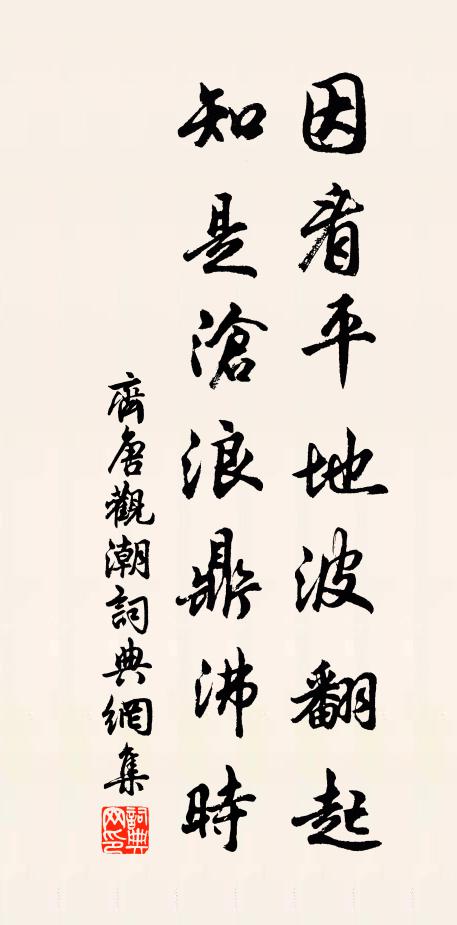 因看平地波翻起
知是滄浪鼎沸時
齊唐觀潮詞典網集
詞典
网印